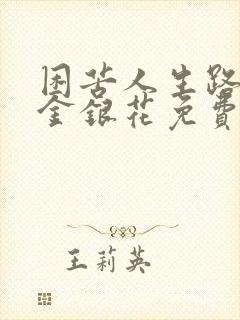 困苦人生路
金银花免费
王莉英